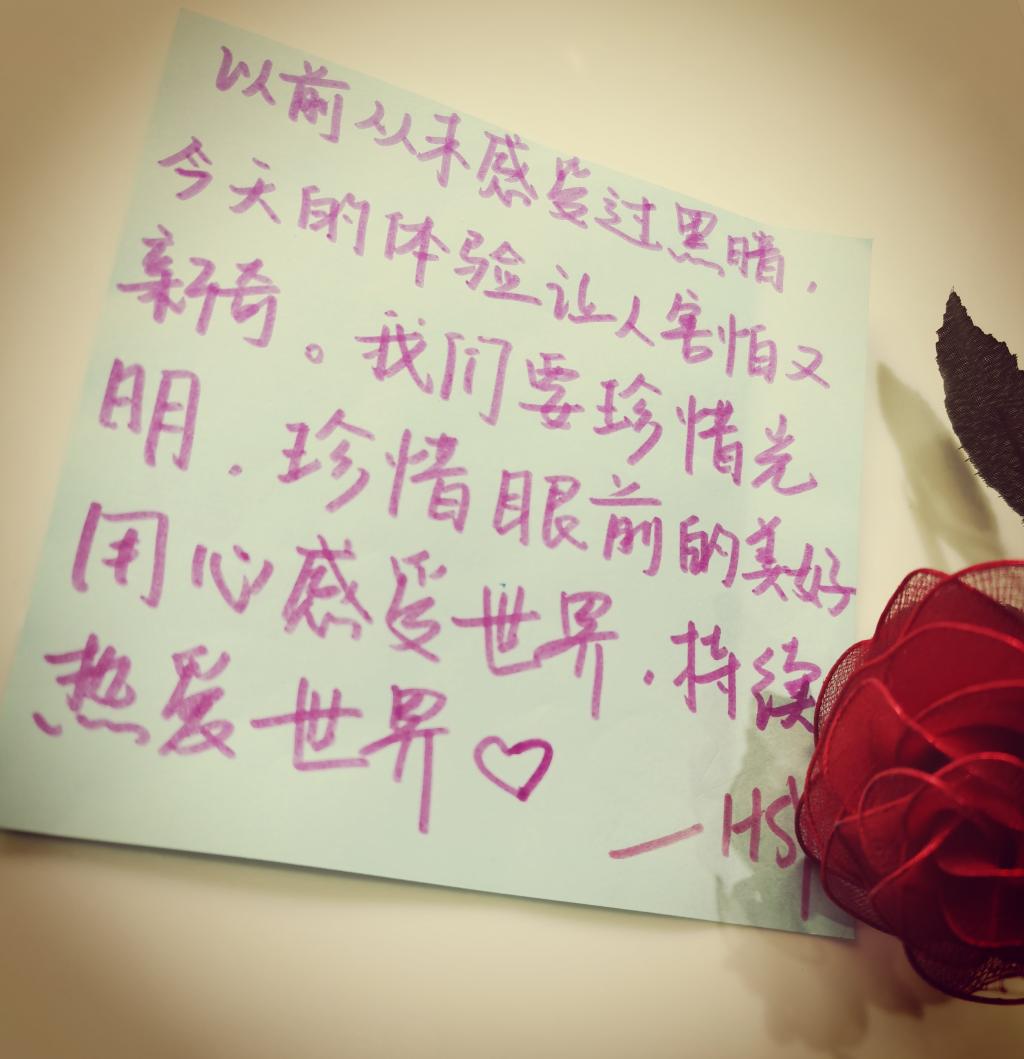 以前从未感受过黑暗，
今天的体验让人害怕又
新奇。我们要珍惜光
明．珍惜眼前的美好
用心感受世界．持续
热爱世界♡
— HS